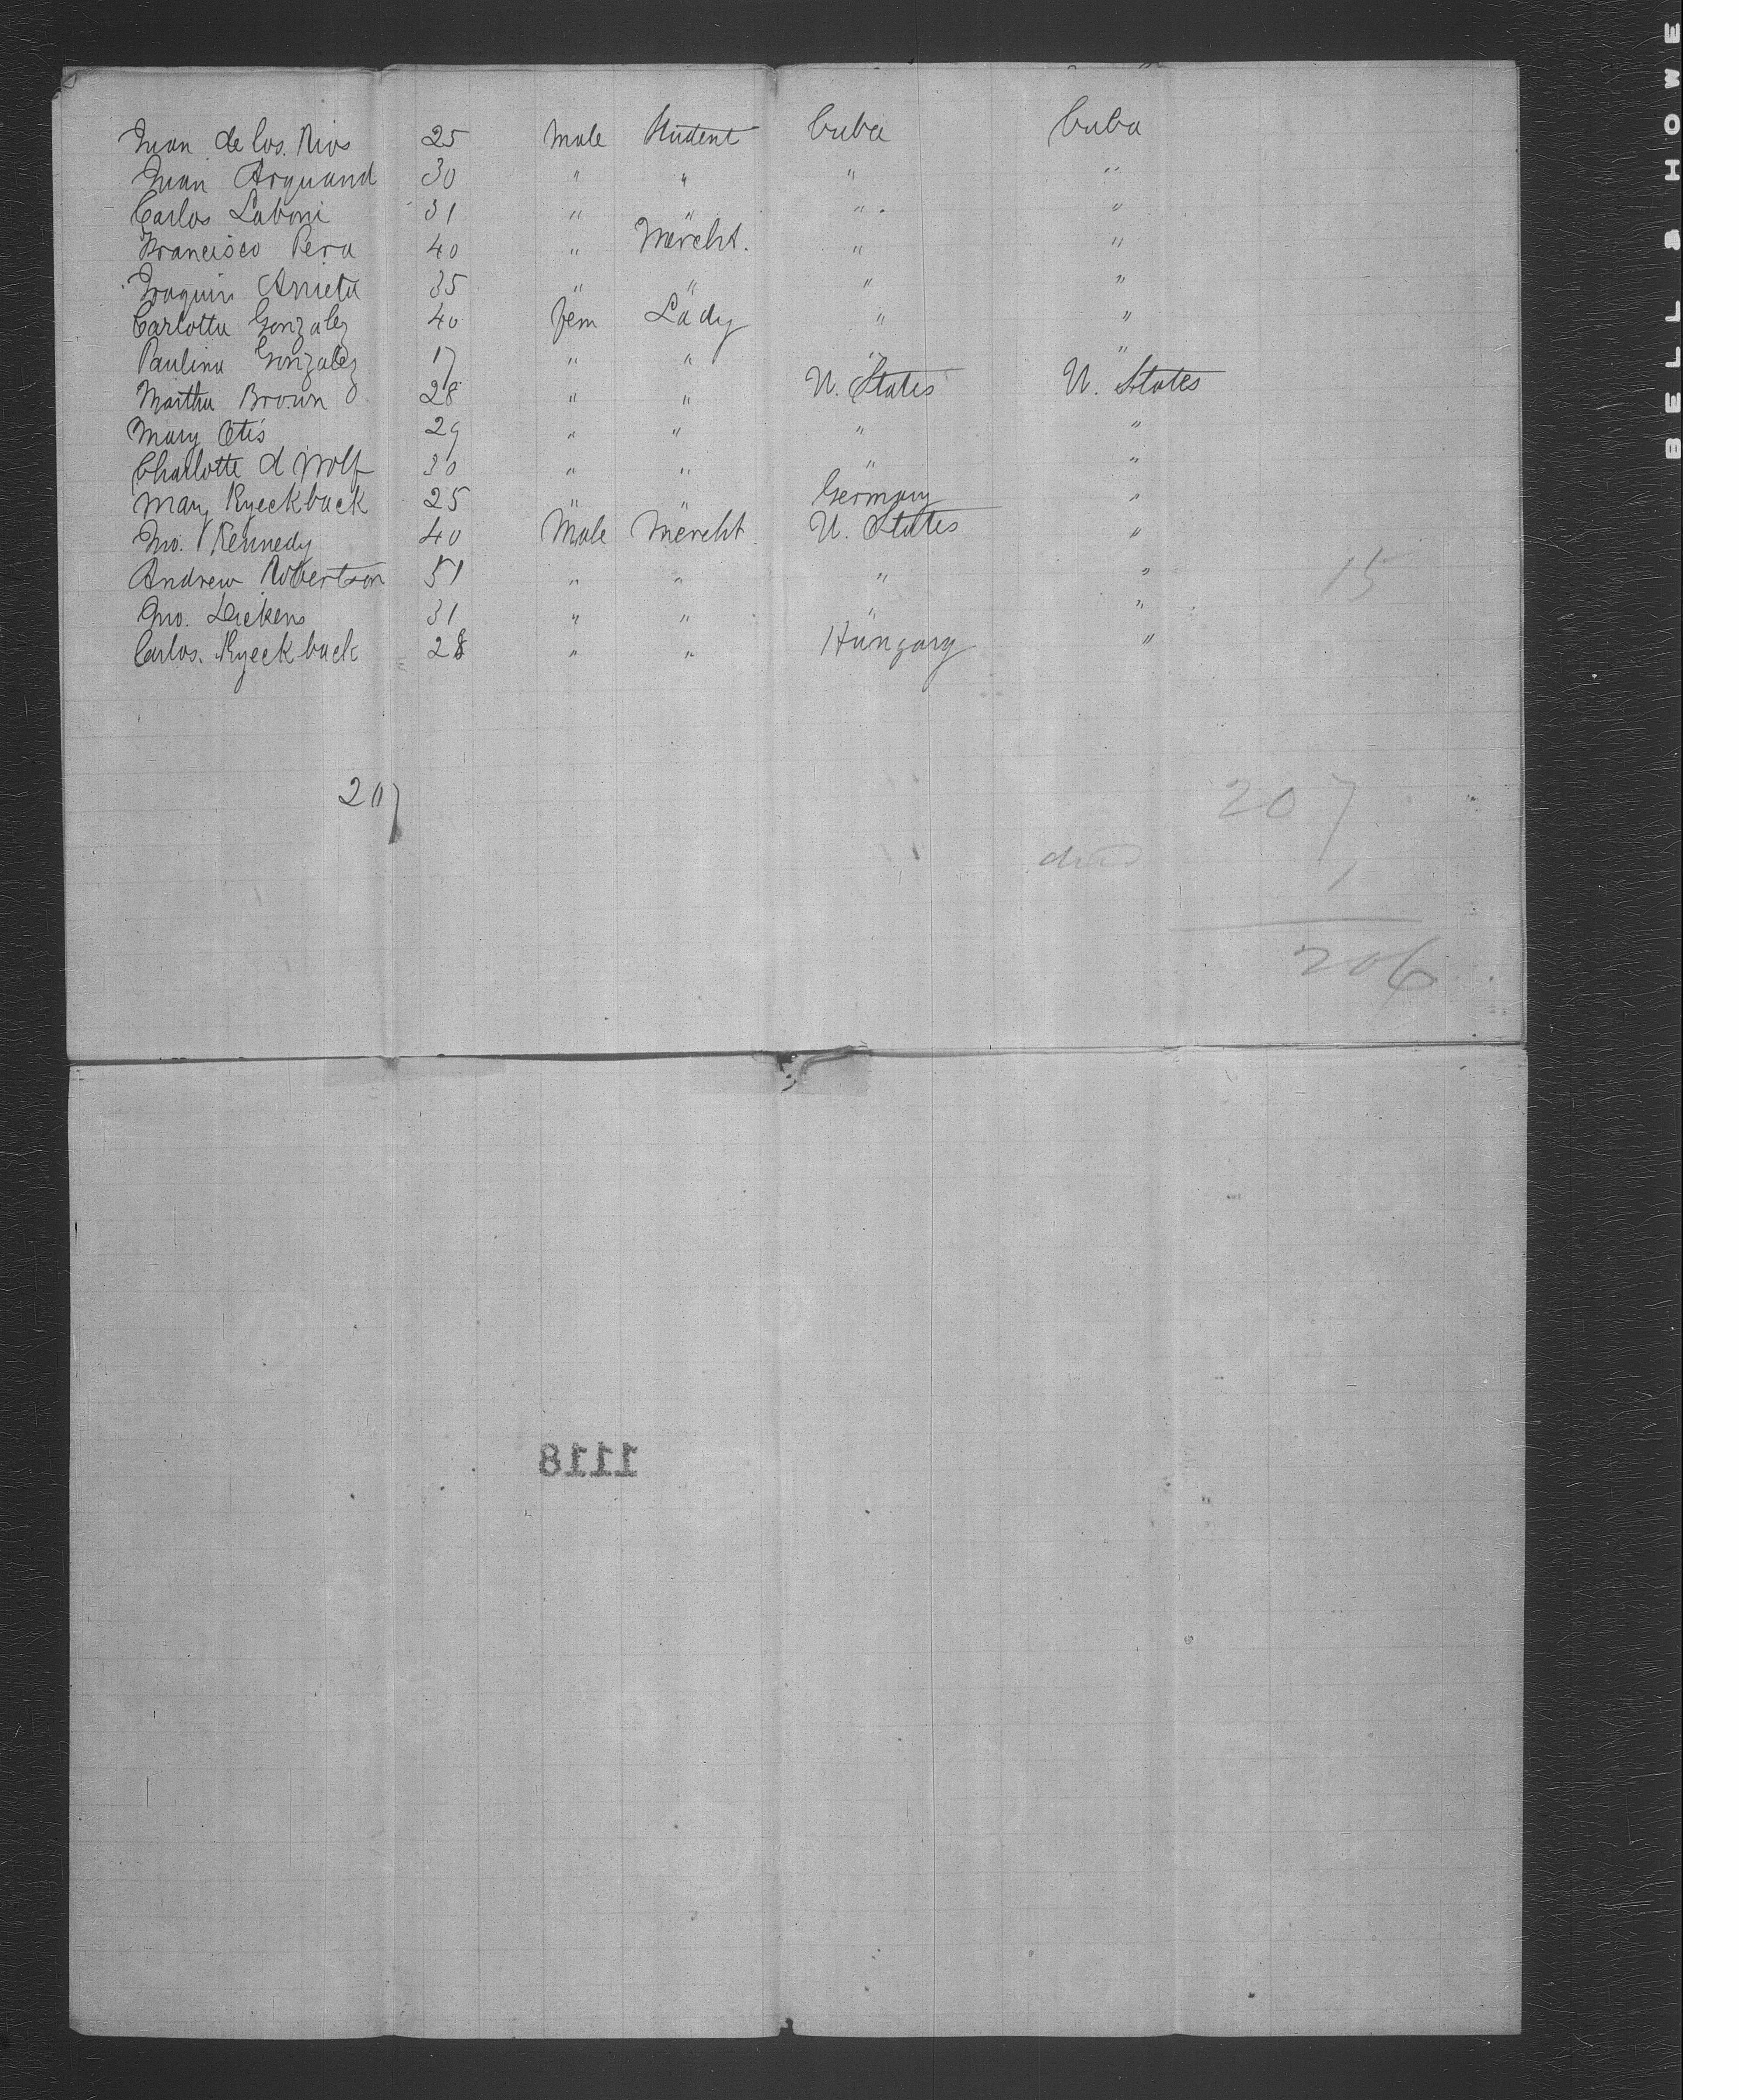 Juan de los Rios 25 Male Student Cuba Cuba
Juan Arguand 30 " " " "
Carlos Laboni 31 " " " "
Francisco Pera 40 " Mercht. " "
Joaquin Arrieta 35 " " " "
Carlotta Gonzalez 40 Fem Lady " "
Paulina Gonzalez 17 " " " "
Martha Brown 28 " " U. States U. States
Mary Otis 29 " " " "
Charlotte d Wolf 30 " " " "
Mary Ryeckback 25 " " Germany "
Jno. Kennedy 40 Male Mercht. U. States "
Andrew Robertson 51 " " " " 15
Jno. Dickens 31 " " " "
Carlos. Ryeckback 28 " " Hungary "
207
207
died 1
206
1118
BELL & HOWE